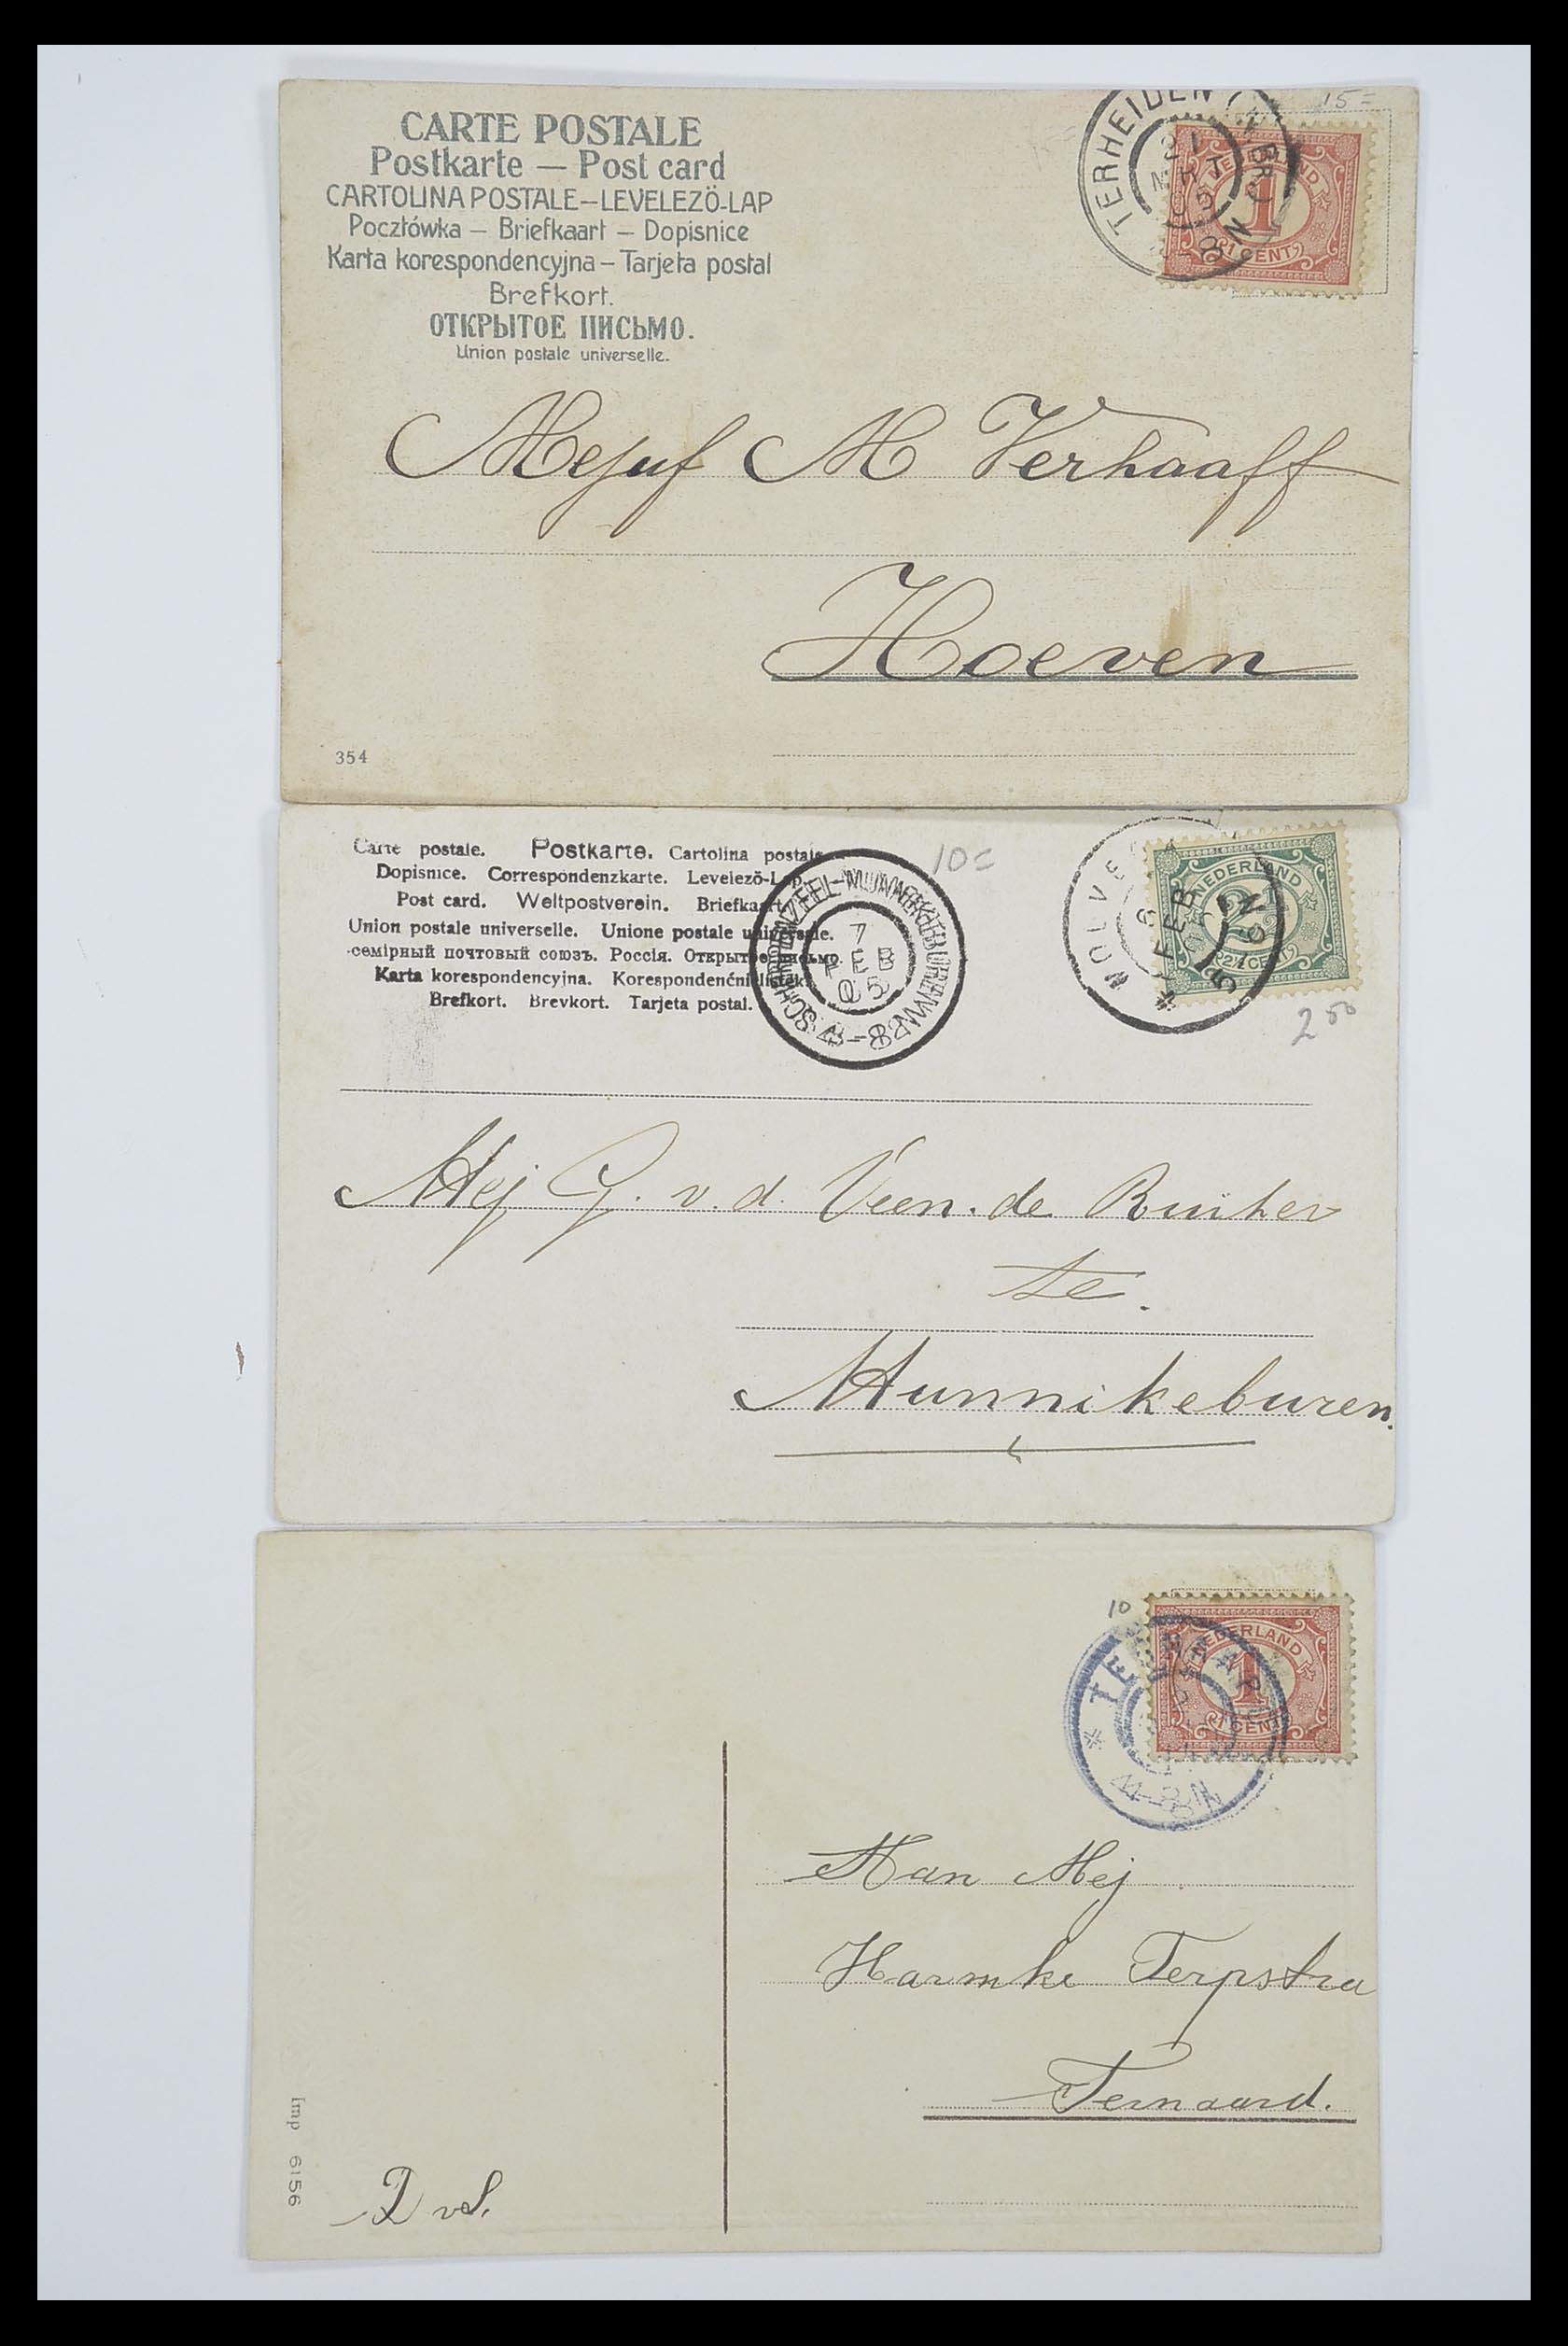 CARTE POSTALE
Postkarte — Post card
CARTOLINA POSTALE—LEVELEZÖ-LAP
Pocztówka — Briefkaart — Dopisnice
Karta korespondencyjna — Tarjeta postal
Brefkort.
ОТКРЫТОЕ ПИСЬМО.
Union postale universelle.
15=
TERHEIDEN
21
MRT
05
8 N
NEDERLAND
1
1 CENT
Mejuf M Verhaaff
Hoeven
354
Carte postale. Postkarte. Cartolina postale.
Dopisnice. Correspondenzkarte. Levelezö-Lap.
Post card. Weltpostverein. Briefkaart.
Union postale universelle. Unione postale universale.
семірный почтовый союзъ. Россія. Открытое письмо.
Karta korespondencyjna. Korespondenční lístek.
Brefkort. Brevkort. Tarjeta postal.
7
FEB
05
10=
WOLVEGA
6 FEB
NEDERLAND
2½
2½ CENT
2 50
Mej G. v. d. Veen. de Ruiter
te.
Munnikeburen.
10
NEDERLAND
1
1 CENT
* TERNAARD
4-8 N
Aan Mej
Harmke Terpstra
Ternaard.
Imp 6156
D vS.